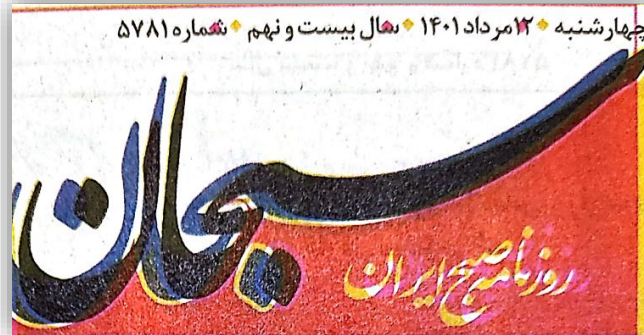 چهارشنبه ◆ ۱۲مرداد۱۴۰۱ ◆ سال بیست و نهم ◆ شماره۵۷۸۱
سبحان
روزنامه صبح ایران